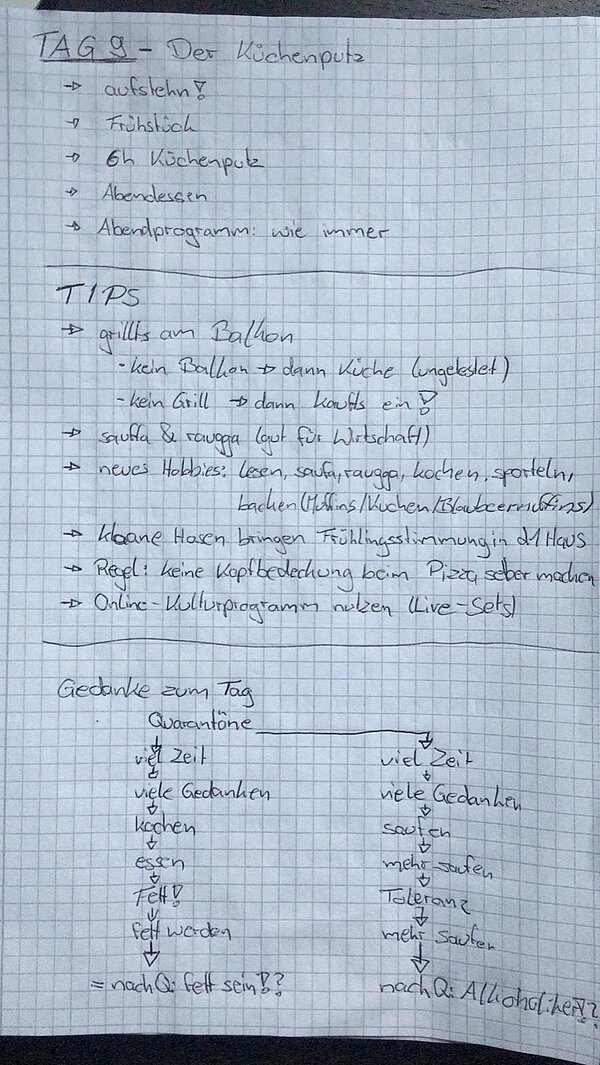 TAG 9 - Der Küchenputz
→ aufstehn!
→ Frühstück
→ 6h Küchenputz
→ Abendessen
→ Abendprogramm: wie immer
TIPS
→ grillts am Balkon
- kein Balkon → dann Küche (ungetestet)
- kein Grill → dann kaufts ein!
→ sauffa & raugga (gut für Wirtschaft)
→ neues Hobbies: lesen, saufa, raugga, kochen, sporteln,
backen (Muffins/Kuchen/Blaubeermuffins)
→ kloane Hasen bringen Frühlingsstimmung in d1 Haus
→ Regel: keine Kopfbedeckung beim Pizza selber machen
→ Online-Kulturprogramm nutzen (Live-Sets)
Gedanke zum Tag
Quarantäne
viel Zeit viel Zeit
viele Gedanken viele Gedanken
kochen saufen
essen mehr saufen
Fett! Toleranz
fett werden mehr saufen
= nach Q: fett sein!? nach Q: Alkoholiker!?